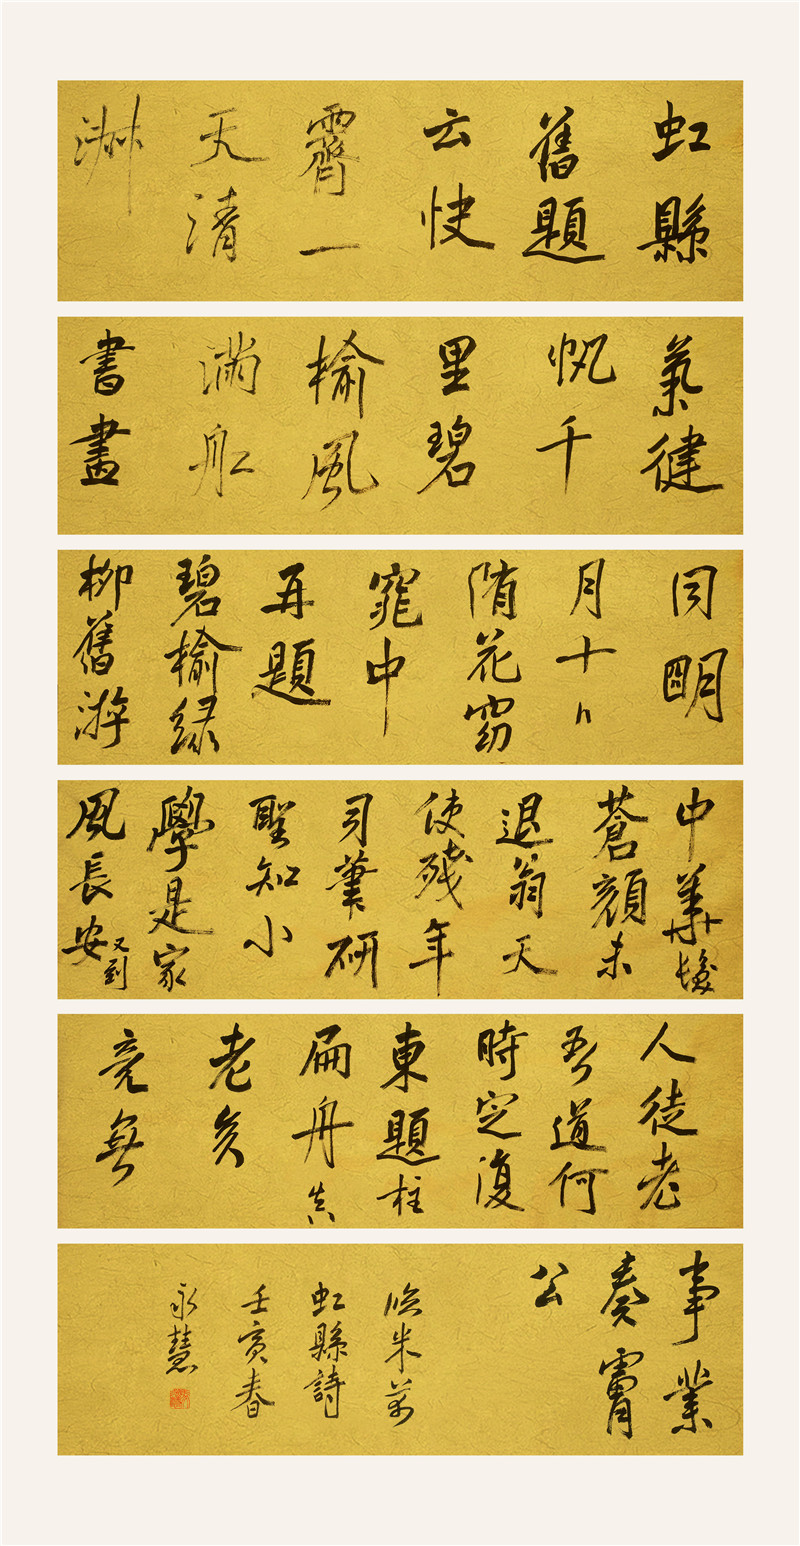 虹縣
舊題
云快
霽一
天清
淑
氣健
帆千
里碧
榆風
滿舡
書畫
同明
月十日
隋花窈
窕中
再題
碧榆綠
柳舊游
中華髮
蒼顏未
退翁天
使殘年
司筆研
聖知小
學是家
風長安又到
人徒老
吾道何
時定復
東題柱
扁舟真
老矣
竟無
事業
奏膚
公
臨米芾
虹縣詩
壬寅春
永慧